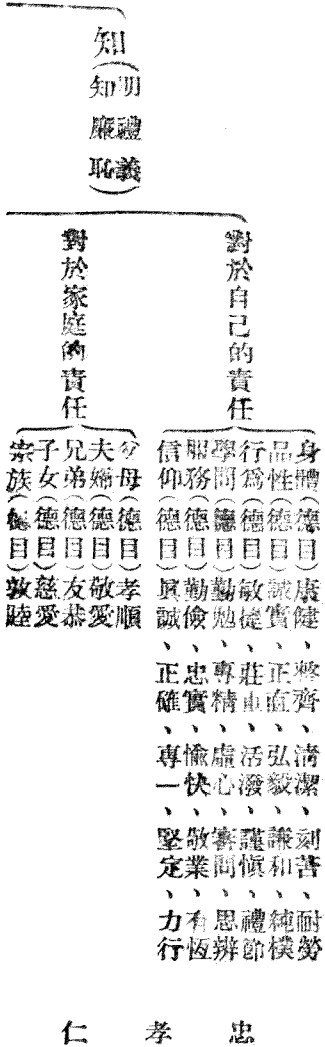 知(明禮義
知廉恥)
對於自己的責任
身體(德目)康健、整齊、清潔、刻苦、耐勞
品性(德目)誠實、正直、弘毅、謙和、純樸
行爲(德目)敏捷、莊重、活潑、謹愼、禮節
學問(德目)勤勉、專精、虛心、審問、思辨
服務(德目)勤儉、忠實、愉快、敬業、有恆
信仰(德目)眞誠、正確、專一、堅定、力行
對於家庭的責任
父母(德目)孝順
夫婦(德目)敬愛
兄弟(德目)友恭
子女(德目)慈愛
宗族(德目)敦睦
忠
孝
仁